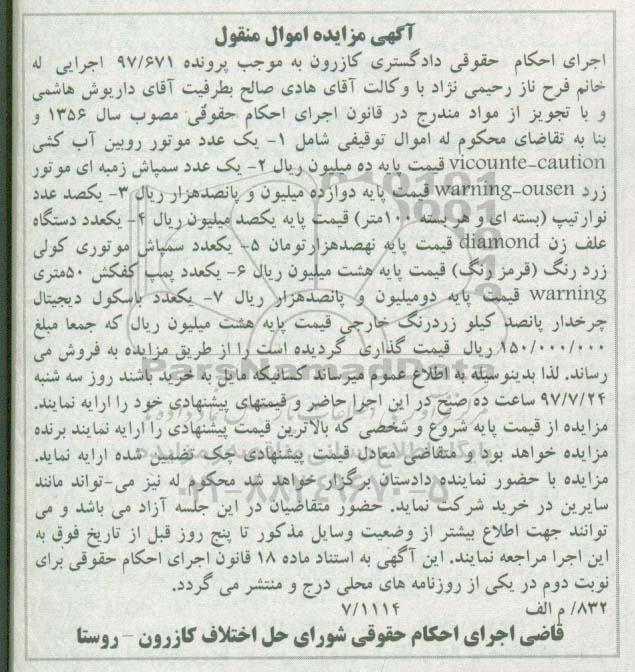 آگهی مزایده اموال منقول
اجرای احکام حقوقی دادگستری کازرون به موجب پرونده ۹۷/۶۷۱ اجرایی له
خانم فرح ناز رحیمی نژاد با وکالت آقای هادی صالح بطرفیت آقای داریوش هاشمی
و با تجویز از مواد مندرج در قانون اجرای احکام حقوقی مصوب سال ۱۳۵۶ و
بنا به تقاضای محکوم له اموال توقیفی شامل ۱- یک عدد موتور روبین آب کشی
vicounte-caution قیمت پایه ده میلیون ریال ۲- یک عدد سمپاش زمبه ای موتور
زرد warning-ousen قیمت پایه دوازده میلیون و پانصدهزار ریال ۳- یکصد عدد
نوارتیپ (بسته ای و هر بسته ۱۰۰متر) قیمت پایه یکصد میلیون ریال ۴- یکعدد دستگاه
علف زن diamond قیمت پایه نهصدهزارتومان ۵- یکعدد سمپاش موتوری کولی
زرد رنگ (قرمز رنگ) قیمت پایه هشت میلیون ریال ۶- یکعدد پمپ کفکش ۵۰متری
warning قیمت پایه دومیلیون و پانصدهزار ریال ۷- یکعدد باسکول دیجیتال
چرخدار پانصد کیلو زردرنگ خارجی قیمت پایه هشت میلیون ریال که جمعا مبلغ
۱۵۰/۰۰۰/۰۰۰ ریال قیمت گذاری گردیده است را از طریق مزایده به فروش می
رساند. لذا بدینوسیله به اطلاع عموم میرساند کسانیکه مایل به خرید باشند روز سه شنبه
۹۷/۷/۲۴ ساعت ده صبح در این اجرا حاضر و قیمتهای پیشنهادی خود را ارایه نمایند.
مزایده از قیمت پایه شروع و شخصی که بالاترین قیمت پیشنهادی را ارایه نمایند برنده
مزایده خواهد بود و متقاضی معادل قیمت پیشنهادی چک تضمین شده ارایه نماید.
مزایده با حضور نماینده دادستان برگزار خواهد شد محکوم له نیز می-تواند مانند
سایرین در خرید شرکت نماید. حضور متقاضیان در این جلسه آزاد می باشد و می
توانند جهت اطلاع بیشتر از وضعیت وسایل مذکور تا پنج روز قبل از تاریخ فوق به
این اجرا مراجعه نمایند. این آگهی به استناد ماده ۱۸ قانون اجرای احکام حقوقی برای
نوبت دوم در یکی از روزنامه های محلی درج و منتشر می گردد.
۸۳۲/ م الف ۷/۱۱۱۴
قاضی اجرای احکام حقوقی شورای حل اختلاف کازرون - روستا
ParsNamadData
۰۲۱-۸۸۳۴۹۶۷۰-۵